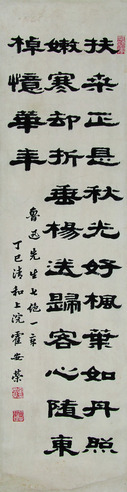 扶桒正是秋光好楓葉如丹照
嫩寒却折垂楊送歸客心隨東
棹憶華年
魯迅先生七絕一章
丁巳清和上浣霍安榮